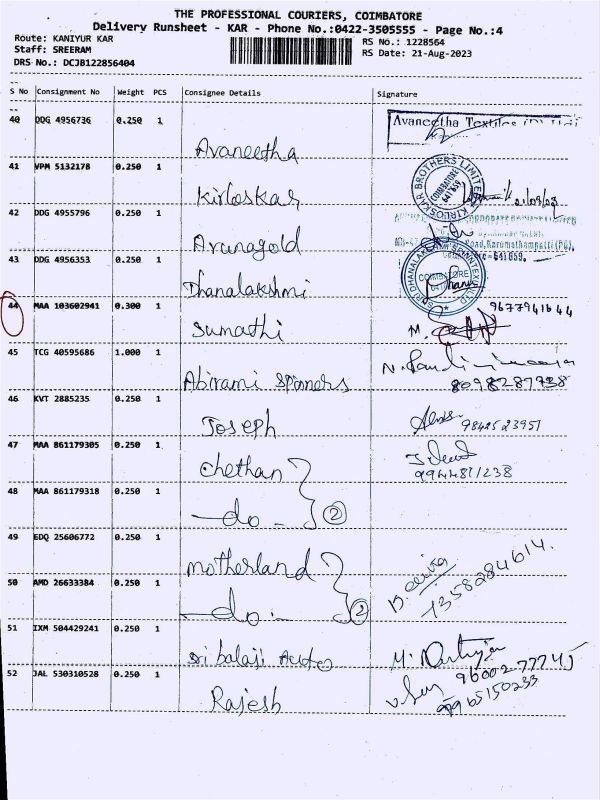 THE PROFESSIONAL COURIERS, COIMBATORE
Delivery Runsheet - KAR - Phone No.:0422-3505555 - Page No.:4
Route: KANIYUR KAR
RS No.: 1228564
Staff: SREERAM
RS Date: 21-Aug-2023
DRS No.: DCJB122856404
S No Consignment No Weight PCS Consignee Details Signature
40 DDG 4956736 0.250 1 Avaneetha Avaneetha Textiles
41 VPM 5132178 0.250 1 Kirloskar KIRLOSKAR BROTHERS LIMITED COIMBATORE 641 659
42 DDG 4955796 0.250 1 Arunagold Road, Karumathampatti (PO),
43 DDG 4956353 0.250 1 Dhanalakshmi SRI DHANALAKSHMI SPINTEX COIMBATORE 641659.
44 MAA 103602941 0.300 1 Sumathi M. 9677941644
45 TCG 40595686 1.000 1 Abirami Spinners 8098287738
46 KVT 2885235 0.250 1 Joseph 9842523951
47 MAA 861179305 0.250 1 Chethan 9944811238
48 MAA 861179318 0.250 1 -do- 2
49 EDQ 25606772 0.250 1 Motherland 7358284614.
50 AMD 26633384 0.250 1 -do- 2
51 IXM 504429241 0.250 1 Sri balaji Auto M. 96002-77745
52 JAL 530310528 0.250 1 Rajesh 9965150233